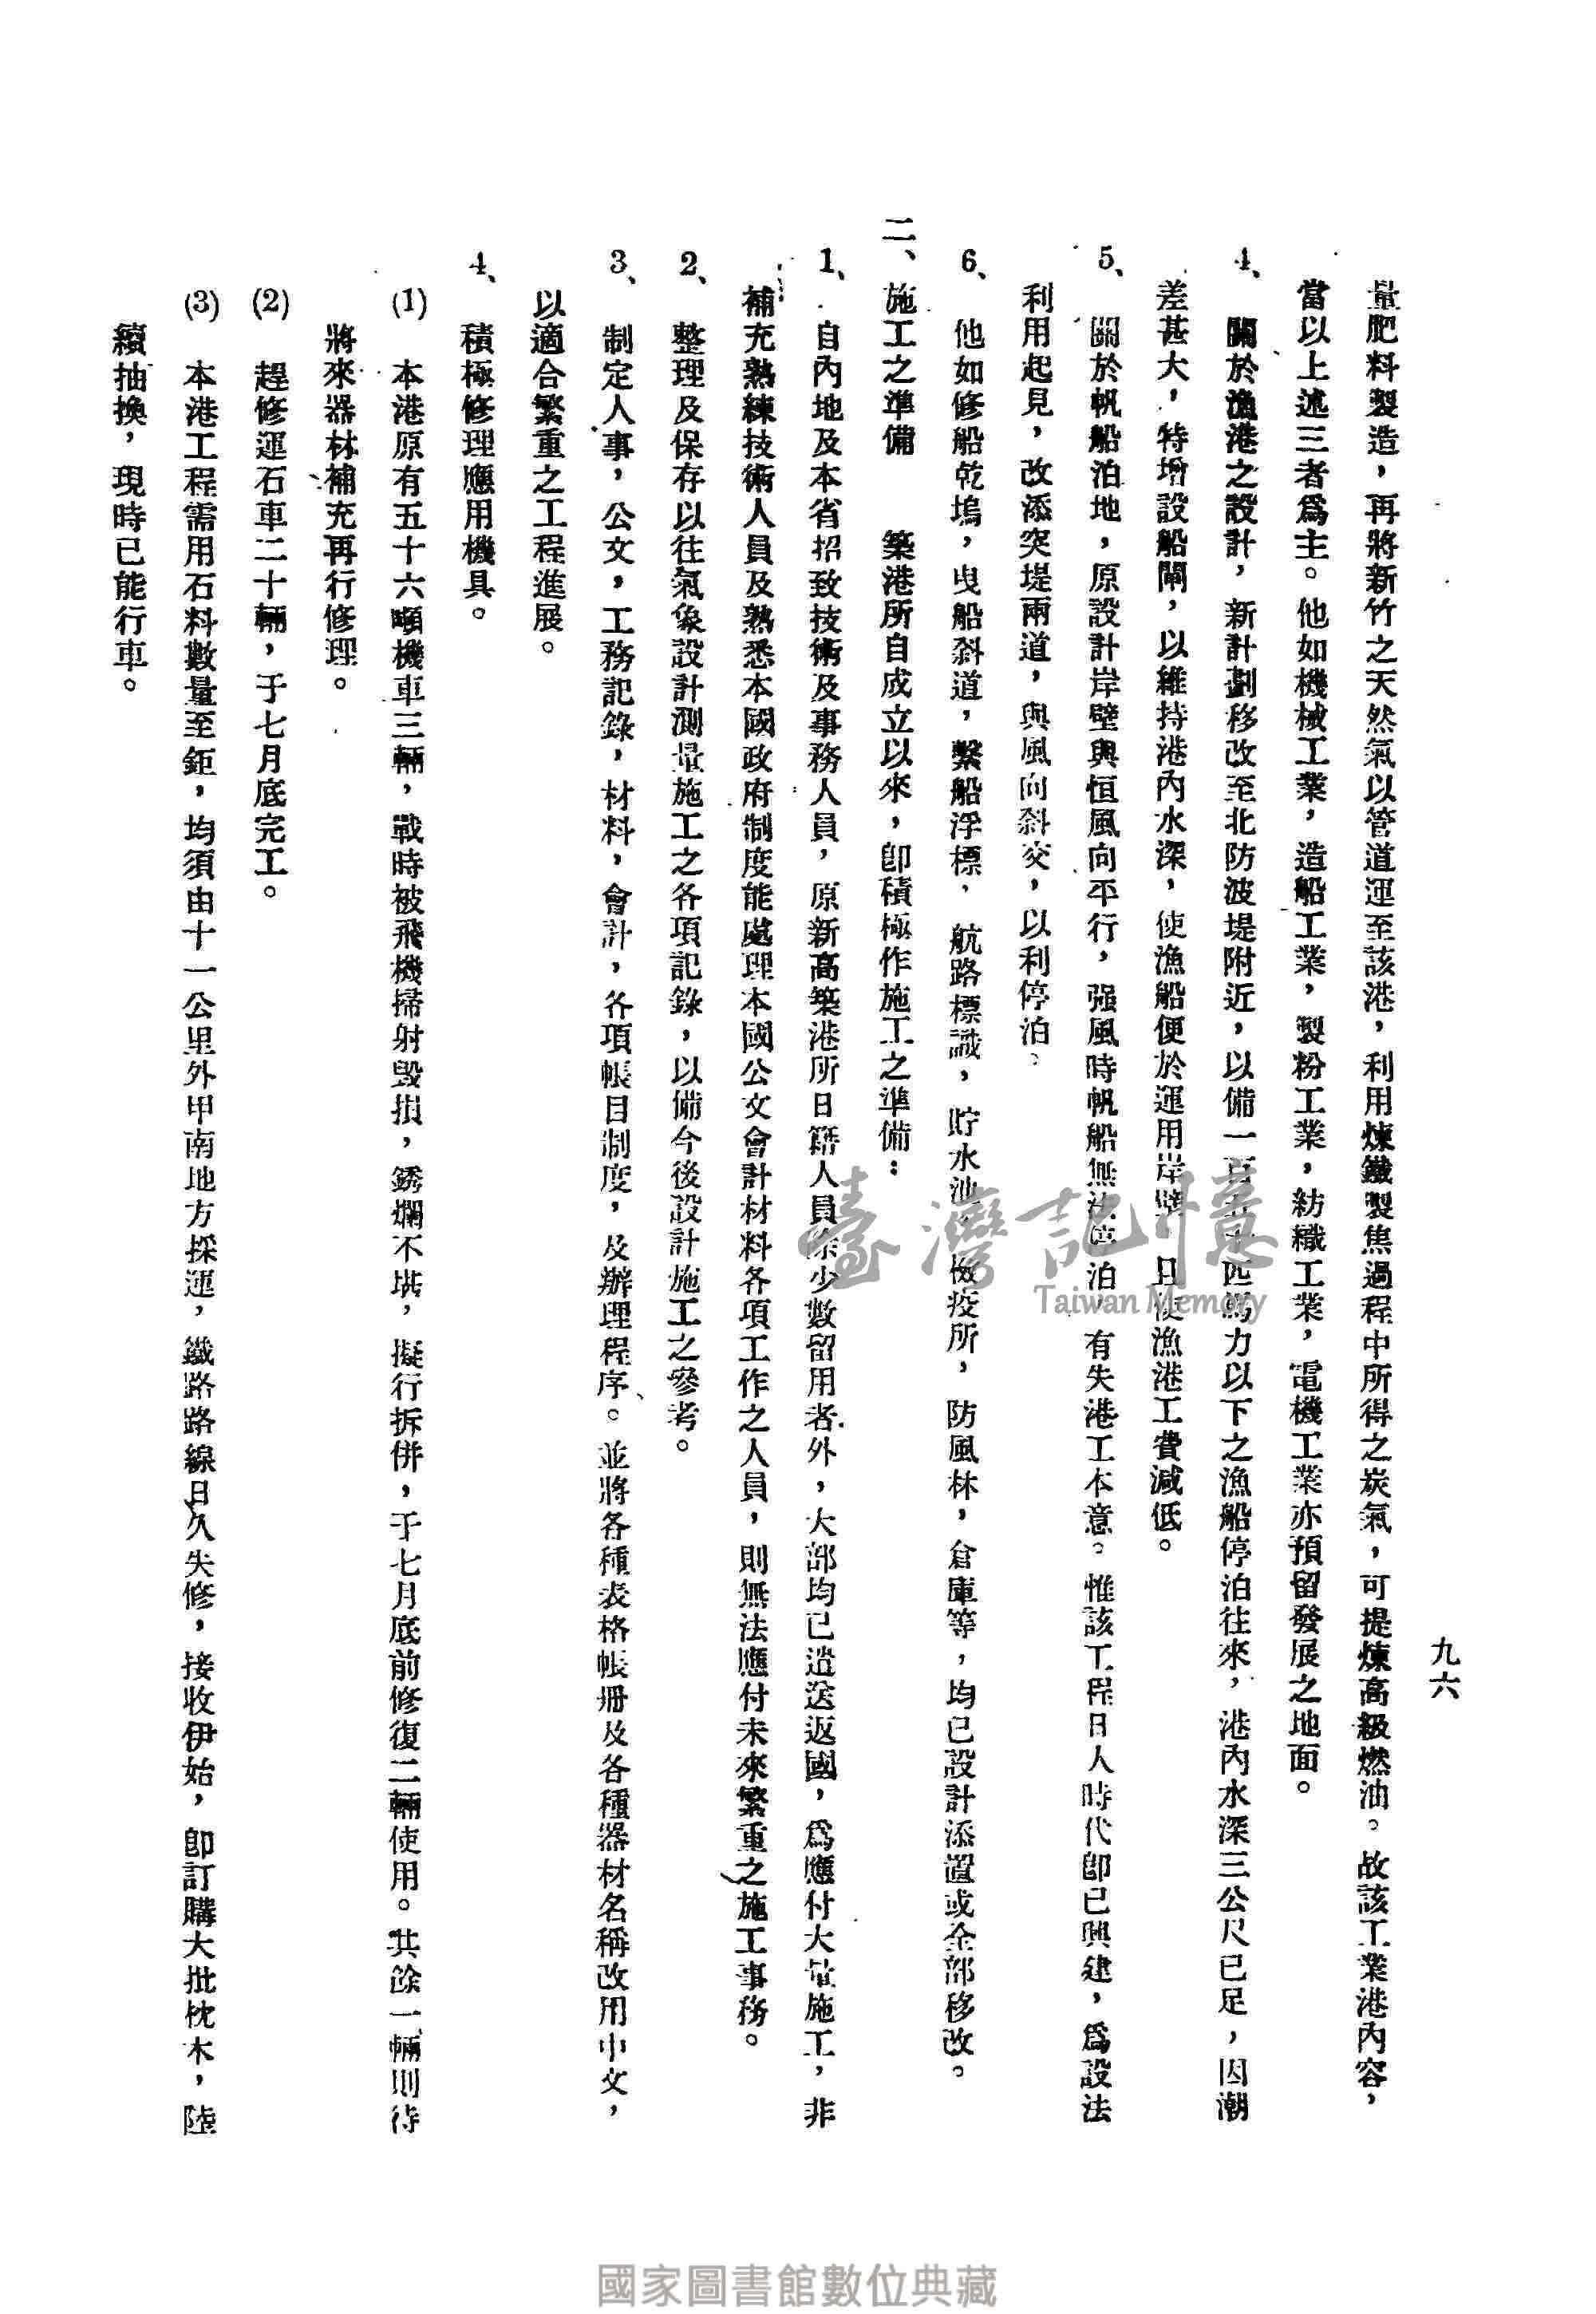 九六
量肥料製造，再將新竹之天然氣以管道運至該港，利用煉鐵製焦過程中所得之炭氣，可提煉高級燃油。故該工業港內容，
當以上述三者爲主。他如機械工業，造船工業，製粉工業，紡織工業，電機工業亦預留發展之地面。
4、關於漁港之設計，新計劃移改至北防波堤附近，以備一百五十匹馬力以下之漁船停泊往來，港內水深三公尺已足，因潮
差甚大，特增設船閘，以維持港內水深，使漁船便於運用岸壁，且使漁港工費減低。
5、關於帆船泊地，原設計岸壁與恒風向平行，强風時帆船無法停泊，有失港工本意。惟該工程日人時代卽已興建，爲設法
利用起見，改添突堤兩道，與風向斜交，以利停泊。
6、他如修船乾塢，曳船斜道，繫船浮標，航路標識，貯水池，檢疫所，防風林，倉庫等，均已設計添置或全部移改。
二、施工之準備　築港所自成立以來，卽積極作施工之準備：
1、自內地及本省招致技術及事務人員，原新高築港所日籍人員除少數留用者外，大部均已遣送返國，爲應付大量施工，非
補充熟練技術人員及熟悉本國政府制度能處理本國公文會計材料各項工作之人員，則無法應付未來繁重之施工事務。
2、整理及保存以往氣象設計測量施工之各項記錄，以備今後設計施工之參考。
3、制定人事，公文，工務記錄，材料，會計，各項帳目制度，及辦理程序。並將各種表格帳册及各種器材名稱改用中文，
以適合繁重之工程進展。
4、積極修理應用機具。
(1)本港原有五十六噸機車三輛，戰時被飛機掃射毀損，銹爛不堪，擬行拆併，于七月底前修復二輛使用。其餘一輛則待
將來器材補充再行修理。
(2)趕修運石車二十輛，于七月底完工。
(3)本港工程需用石料數量至鉅，均須由十一公里外甲南地方採運，鐵路路線日久失修，接收伊始，卽訂購大批枕木，陸
續抽換，現時已能行車。
臺灣記憶
Taiwan Memory
國家圖書館數位典藏